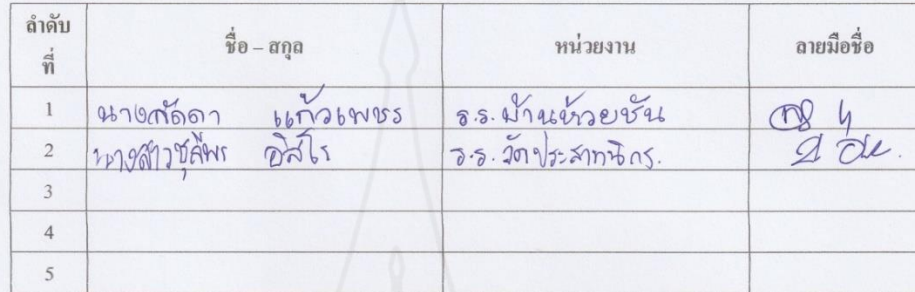 ลำดับที่ ชื่อ – สกุล หน่วยงาน ลายมือชื่อ
1 นางลัดดา แก้วเพชร ร.ร.บ้านห้วยชัน
2 นางสาวชุลีพร อิสไร ร.ร.วัดประสาทนิกร.
3
4
5